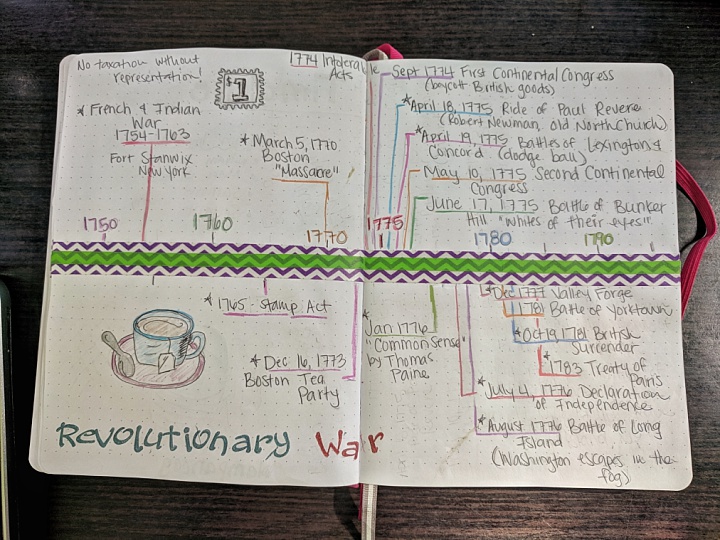 No taxation without
representation!
$1
* French & Indian
War
1754-1763
Fort Stanwix
New York
* March 5, 1770
Boston
"Massacre"
1774 Intolerable
Acts
Sept 1774 First Continental Congress
(boycott British goods)
*April 18, 1775 Ride of Paul Revere
(Robert Newman, old North Church)
*April 19, 1775 Battles of Lexington &
Concord (dodge ball)
May 10, 1775 Second Continental
Congress
June 17, 1775 Battle of Bunker
Hill "whites of their eyes"
1750
1760
1770
1775
1780
1790
* 1765 - Stamp Act
* Dec 16, 1773
Boston Tea
Party
Jan 1776
"Common Sense"
by Thomas
Paine
*Dec 1777 Valley Forge
1781 Battle of Yorktown
*Oct 19, 1781 British
Surrender
*1783 Treaty of
Paris
*July 4, 1776 Declaration
of Independence
*August 1776 Battle of Long
Island
(Washington escapes in the
fog)
Revolutionary War